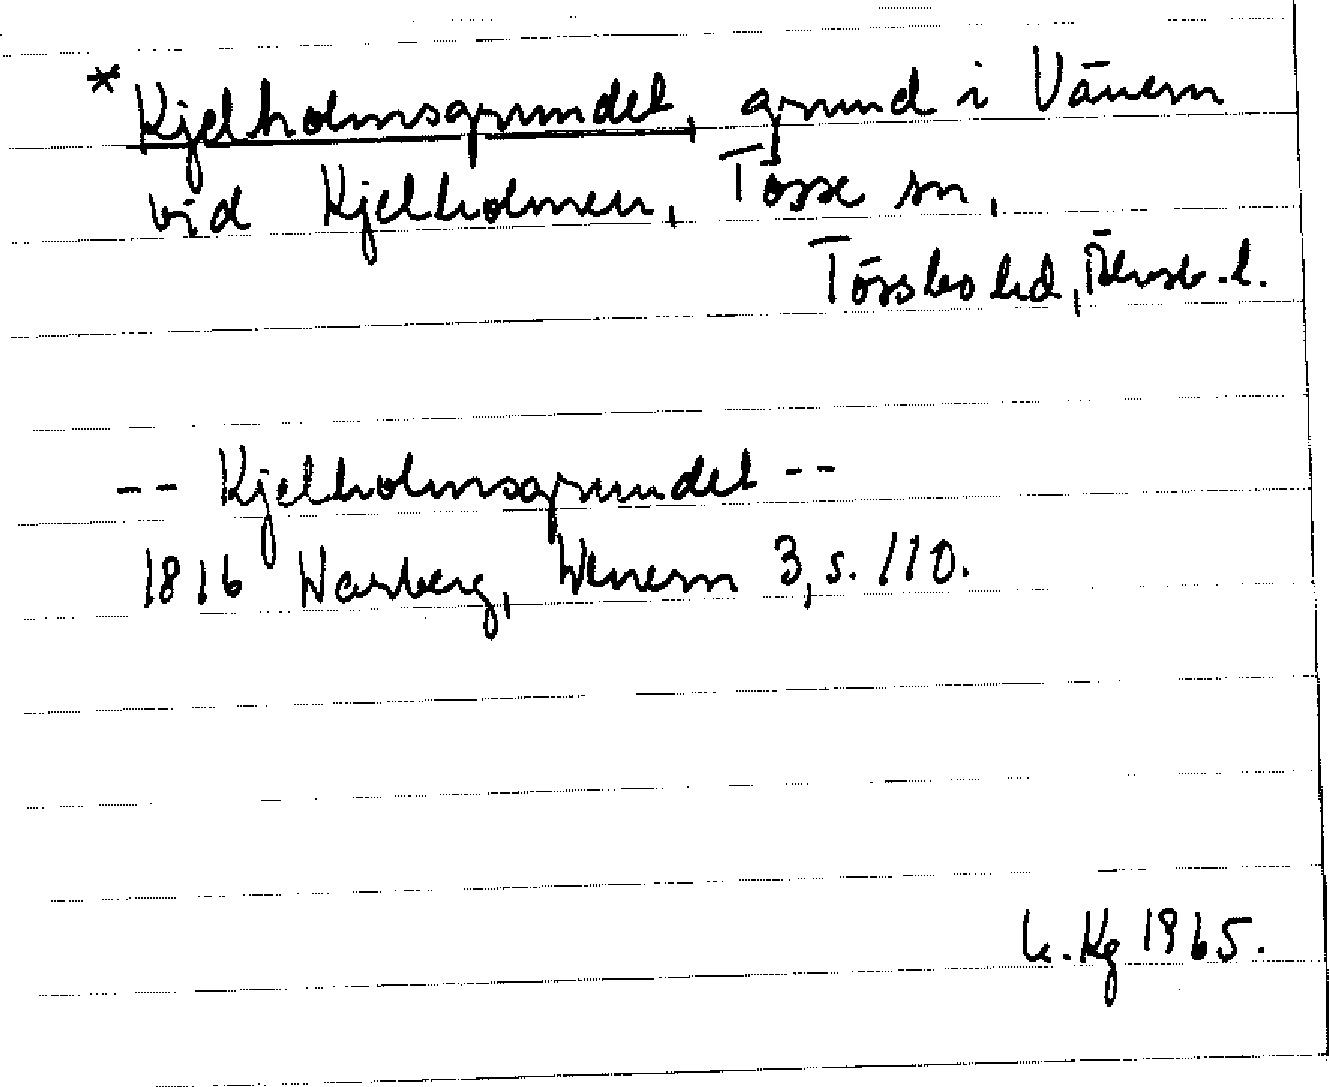 * Kjelholmsgrundet, grund i Vänern
vid Kjelholmen, Tösse sn,
Tössbo hd, Älvsb. l.
-- Kjelholmsgrundet --
1816 Warberg, Wenern 3, s. 110.
K. Kg 1965.